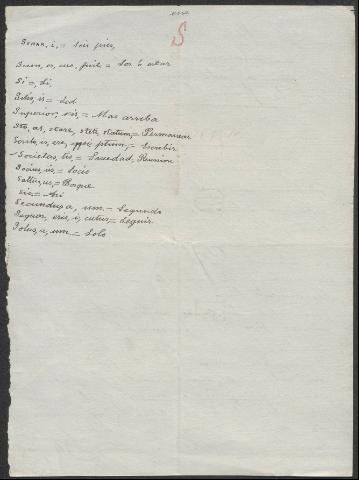 S
Si =, Si,
Sitis, is = Sed
Superior, ris, = Mas arriba
Sto, as, stare, steti, statum, = Permanecer
Scribo, is, ere, psi, ptum, = Escribir
Societas, tis, = Sociedad, Reunion
Socius, ii, = Socio
Saltus, us, = Bosque
Sic = Asi
Secundus, a, um, = Segundo
Sequor, eris, i, cutus = Seguir
Solus, a, um, = Solo